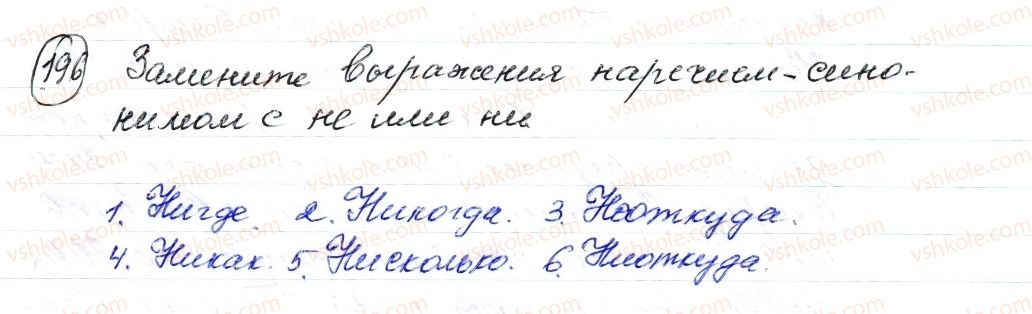 196 Замените выражения наречием-сино-
нимом с не или ни
1. Нигде. 2. Никогда. 3. Неоткуда.
4. Никак. 5. Нисколько. 6. Ниоткуда.